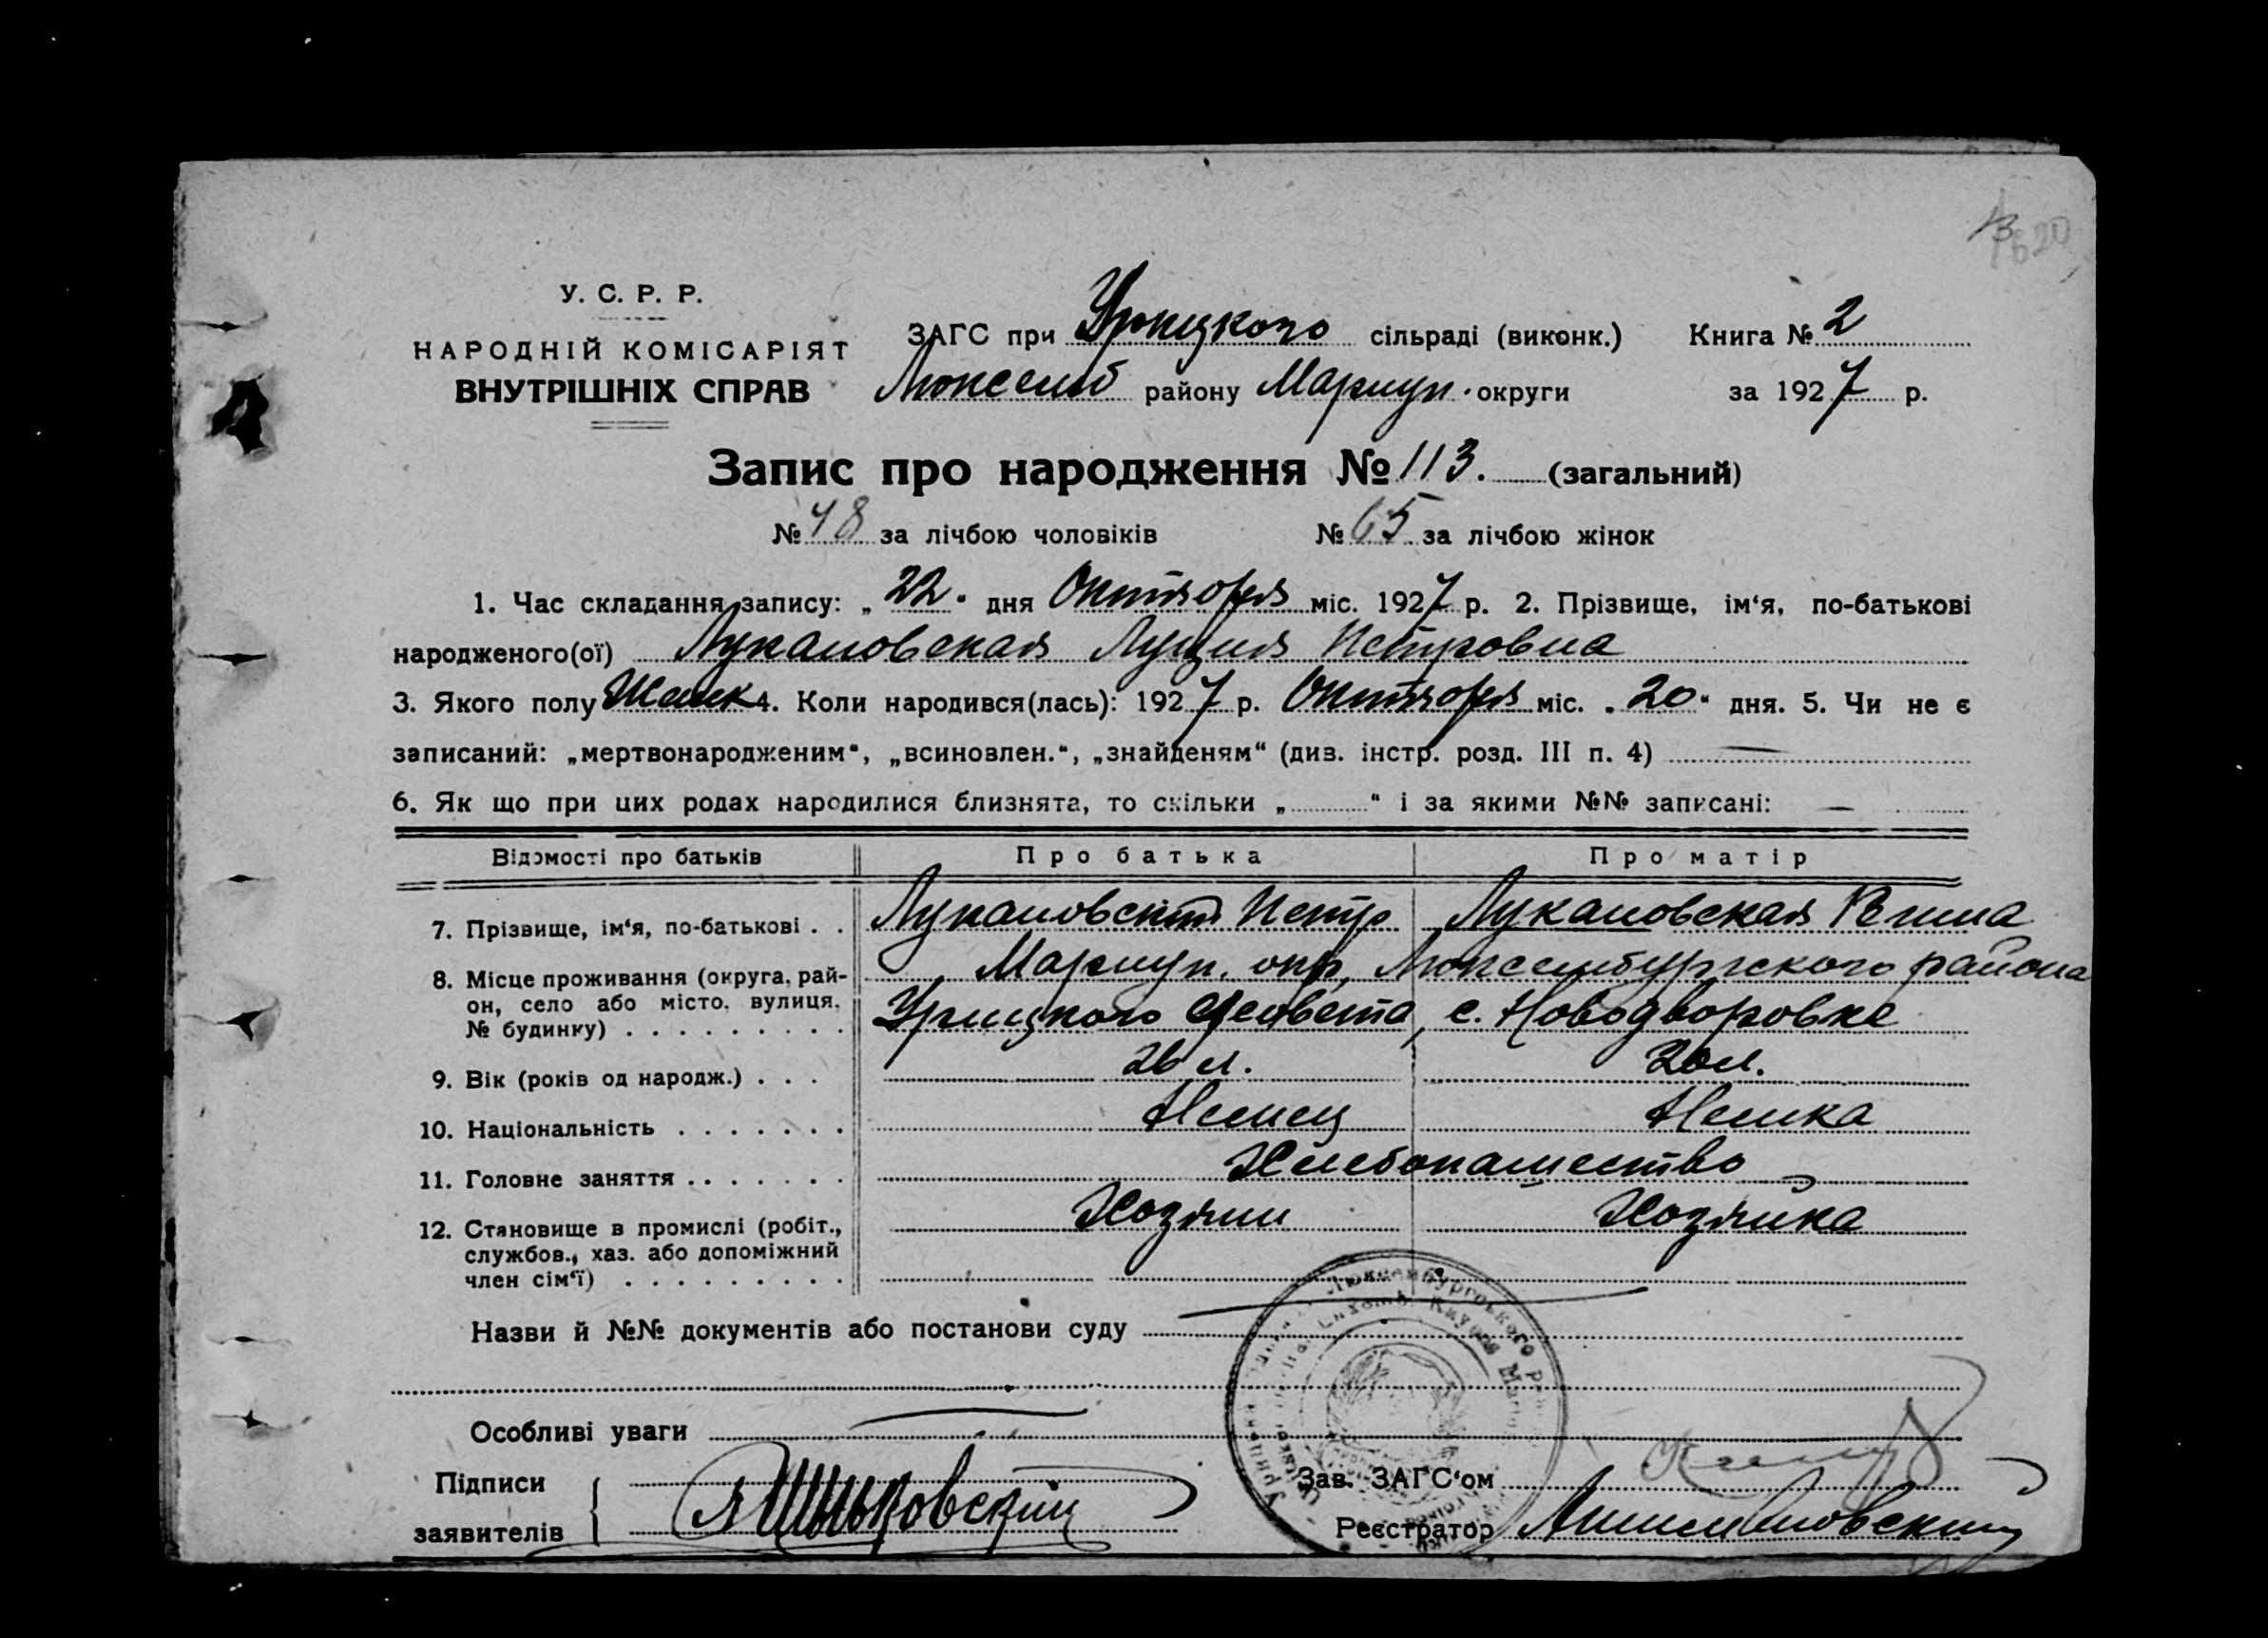 У. С. Р. Р.
НАРОДНІЙ КОМІСАРІЯТ
ВНУТРІШНІХ СПРАВ
ЗАГС при Урицкого сільраді (виконк.) Книга № 2
Люксемб району Мариуп. округи за 1927 р.
Запис про народження № 113. (загальний)
№ 48 за лічбою чоловіків № 65 за лічбою жінок
1. Час складання запису: „22“ дня Октября міс. 1927 р. 2. Прізвище, ім‘я, по-батькові
народженого(ої) Лукановская Луция Петровна
3. Якого полу Женск 4. Коли народився(лась): 1927 р. Октября міс. „20“ дня. 5. Чи не є
записаний: „мертвонародженим“, „всиновлен.“, „знайденям“ (див. інстр. розд. III п. 4) —
6. Як що при цих родах народилися близнята, то скільки „ “ і за якими №№ записані: —
Відомості про батьків Про батька Про матір
7. Прізвище, ім‘я, по-батькові . . Лукановский Петр Лукановская
8. Місце проживання (округа, рай- Мариуп. окр, Люксембургского района
он, село або місто, вулиця, Урицкого с. Новодворовке
№ будинку) . . . . . . . . .
9. Вік (років од народж.) . . . 26 л. 20 л.
10. Національність . . . . . . . Немец Немка
11. Головне заняття . . . . . . . Хлебопашество
12. Становище в промислі (робіт., Хозяин Хозяйка
службов., хаз. або допоміжний
член сім‘ї) . . . . . . . . .
Назви й №№ документів або постанови суду
Особливі уваги
Підписи
заявителів
Зав. ЗАГС‘ом
Реєстратор